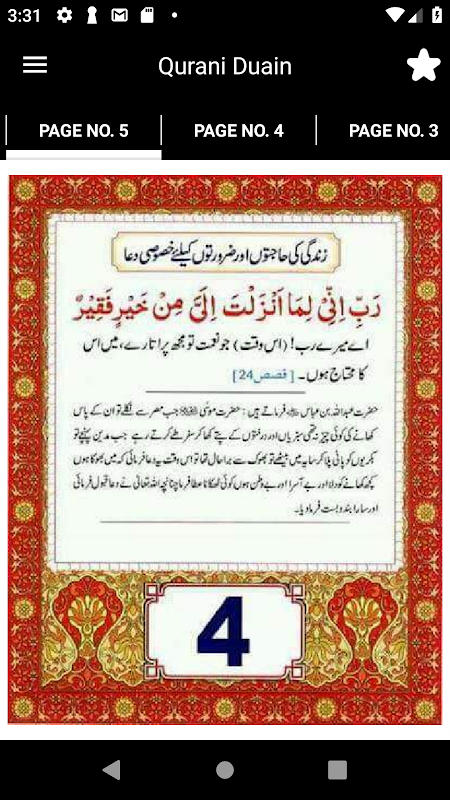 3:31
Qurani Duain
PAGE NO. 5
PAGE NO. 4
PAGE NO. 3
زندگی کی حاجتوں اور ضرورتوں کیلئے خصوصی دعا
رَبِّ اِنِّیْ لِمَا اَنْزَلْتَ اِلَیَّ مِنْ خَیْرٍ فَقِیْرٌ
اے میرے رب! (اس وقت) جو نعمت تو مجھ پر اتارے، میں اس
کا محتاج ہوں۔ [قصص 24]
حضرت عبداللہ بن عباس فرماتے ہیں: حضرت موسیٰ جب مصر سے نکلے تو ان کے پاس
کھانے کی کوئی چیز نہ تھی سبزیاں اور درختوں کے پتے کھا کر سفر طے کرتے رہے جب مدین پہنچے تو
بکریوں کو پانی پلا کر سایہ میں بیٹھے تو بھوک سے برا حال تھا تو اس وقت یہ دعا فرمائی کہ میں بھوکا ہوں
کچھ کھانے کو دلا اور بے آسرا اور بے وطن ہوں کوئی ٹھکانا عطا فرما چنانچہ اللہ تعالیٰ نے دعا قبول فرمائی
اور سارا بندوبست فرما دیا۔
4